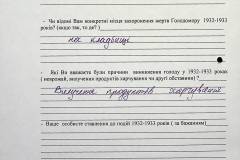 - Чи відомі Вам конкретні місця захоронень жертв Голодомору 1932-1933
років? (якщо так, то де?)
на кладбище
- Які Ви вважаєте були причини виникнення голоду у 1932-1933 роках
( неврожай, вилучення продуктів харчування чи другі обставини)?
Вилучення продуктів харчування
- Ваше особисте ставлення до подій 1932-1933 років ( за бажанням)